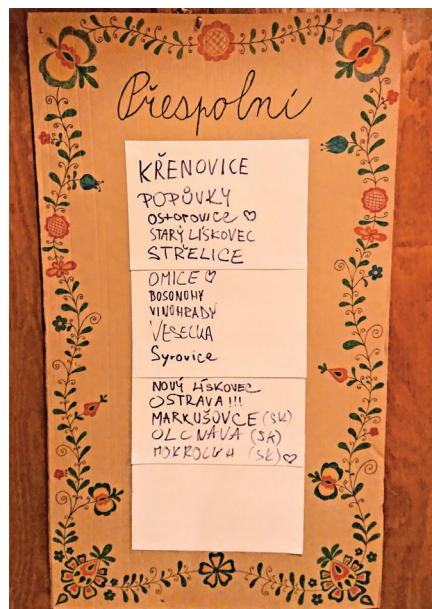 Přespolní
KŘENOVICE
POPŮVKY
OSTOPOVICE ♡
STARÝ LÍSKOVEC
STŘELICE
OMICE ♡
BOSONOHY
VINOHRADY
VESELKA
Syrovice
NOVÝ LÍSKOVEC
OSTRAVA!!!
MARKUŠOVCE (SK)
OLCNAVA (SK)
(SK) ♡